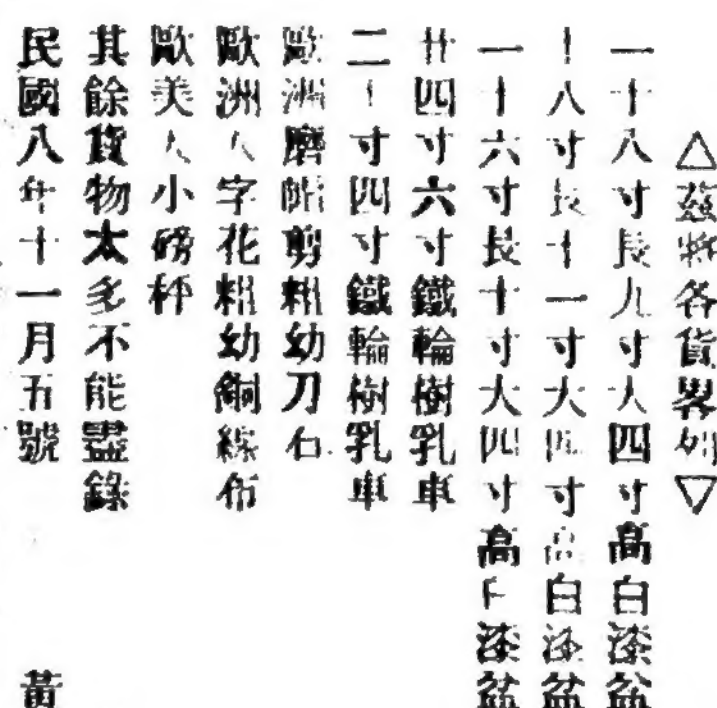 △茲將各貨畧列▽
一十八寸長九寸大四寸高白漆盆
十八寸長十一寸大四寸高白漆盆
一十六寸長十寸大四寸高白漆盆
廿四寸六寸鐵輪樹乳車
二十寸四寸鐵輪樹乳車
歐洲磨帖剪粗幼刀石
歐洲人字花粗幼銅線布
歐美大小磅秤
其餘貨物太多不能盡錄
民國八年十一月五號
黃